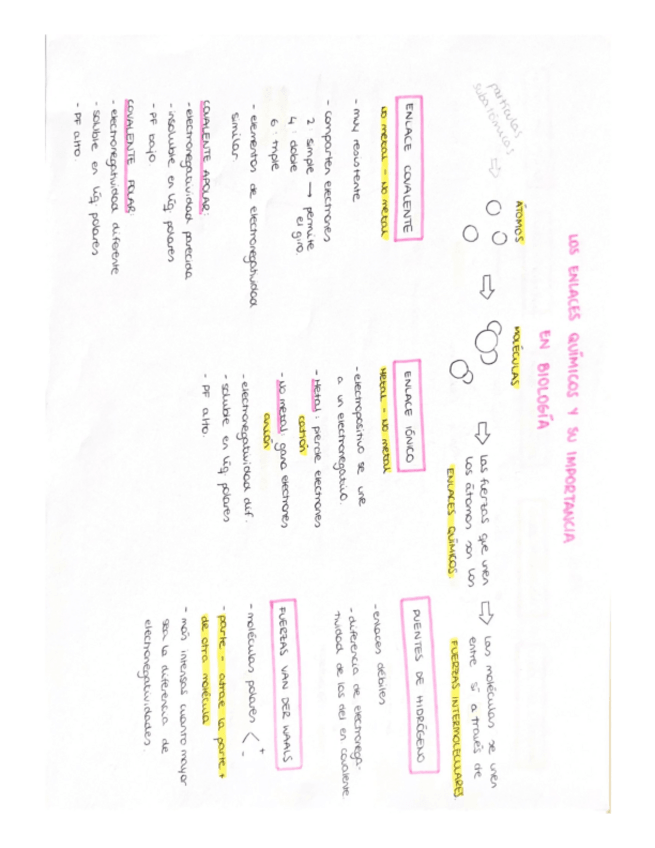 LOS ENLACES QUÍMICOS Y SU IMPORTANCIA
EN BIOLOGÍA
partículas
subatómicas
ÁTOMOS
MOLÉCULAS
Las fuerzas que unen
los átomos son los
ENLACES QUÍMICOS.
Las moléculas se unen
entre sí a través de
FUERZAS INTERMOLECULARES.
ENLACE COVALENTE
No metal - No metal
- muy resistente
- comparten electrones
2: simple → permite
el giro
4: doble
6: triple
- elementos de electronegatividad
similar.
COVALENTE APOLAR:
- electronegatividad parecida
- insoluble en líq. polares
- PF bajo
COVALENTE POLAR:
- electronegatividad diferente
- soluble en líq. polares
- PF alto.
ENLACE IÓNICO
Metal - No metal
- electropositivo se une
a un electronegativo.
- Metal: pierde electrones
catión
- No metal: gana electrones
anión
- electronegatividad dif.
- soluble en líq polares
- PF alto.
PUENTES DE HIDRÓGENO
- enlaces débiles
- diferencia de electronega-
tividad de los del en covalente
FUERZAS VAN DER WAALS
- moléculas polares < + -
- parte - atrae la parte +
de otra molécula
- más intensas cuanto mayor
sea la diferencia de
electronegatividades.